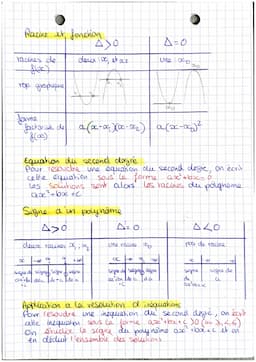 Racine et fonction
Δ>0 Δ=0
racines de f(x) deux x₁ et x₂ une x₀
rep graphique
forme factorisée de f(x) a(x-x₁)(x-x₂) a(x-x₀)²
Equation du second degré
Pour résoudre une équation du second degré, on écrit
cette équation sous la forme ax²+bx+c=0
les solutions sont alors les racines du polynôme
ax²+bx+c.
Signe d'un polynôme
Δ>0 Δ=0 Δ<0
deux racines x₁, x₂ une racine x₀ pas de racine
Application a la résolution d'inéquations
Pour résoudre une inéquation du second degré, on écrit
cette inéquation sous la forme ax²+bx+c>0
On étudie le signe du polynôme ax²+bx+c et on
en déduit l'ensemble des solutions.